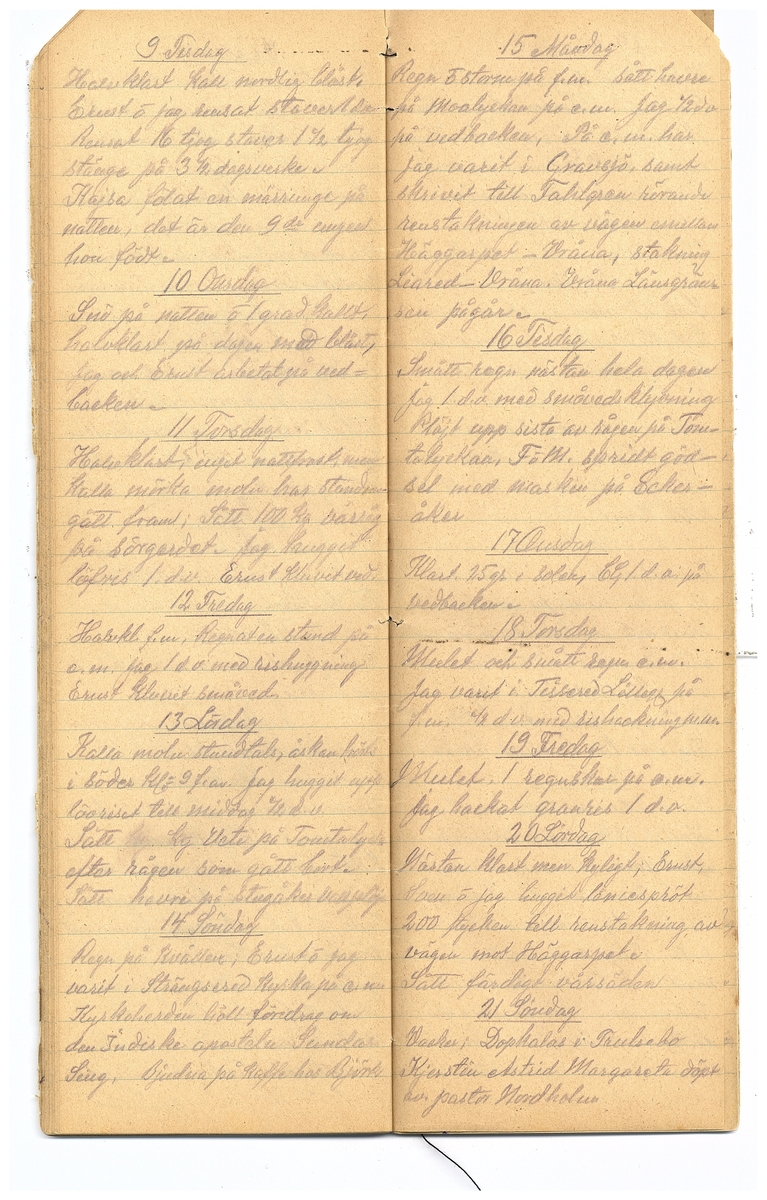 9 Tisdag
Halvklart kall nordlig blåst,
Ernst ö jag rensat staver
Rensat 16 tjog staver 1 1/2 tjog
stänge på 3 1/2 dagsverke.
Kajsa fölat en märrunge på
natten, det är den 9de ungen
hon födt.
10 Onsdag
Snö på natten ö 1 grad kallt,
halvklart på dagen med blåst,
jag och Ernst arbetat på ved=
backen.
11 Torsdag
Halvklart; inget nattfrost, men
kalla mörka moln har
gått fram; Sått 100 kg vårråg
på Sörgardet. Jag hugget
löfris 1 d.v. Ernst kluvit ved.
12 Fredag
Halvkl. f.m. Regnat en stund på
e.m. jag 1 d v med rishuggning
Ernst kluvit småved.
13 Lördag
Kalla moln stundtals, åskan
i Söder kl= 9 f.m. jag hugget upp
lövriset till middag 1/2 d.v.
Sått kg Vete på
efter rågen som gått bort.
Sått havre på stugåker
14 Söndag
Regn på kvällen; Ernst ö jag
varit i Strängsered kyrka på e.m
Kyrkoherden höll föredrag om
den Indiske aposteln Sundar
Sing, Bjudna på kaffe hos Björk
15 Måndag
Regn ö storm på f.m. Sått havre
på Moalyckan på e.m. Jag 1/2 dv
på vedbacken, På e.m. har
jag varit i Gravsjö, samt
skrivit till Fahlgren rörande
renstakningen av vägen emellan
Häggarpet - Vråna, stakning
Liared - Vråna. Vråna Länsgrän
sen pågår.
16 Tisdag
Smått regn nästan hela dagen
jag 1 d.v. med småvedsklyvning
Plöjt upp sista av rågen på Tom-
talyckan, F ö M. spridt göd-
sel med maskin på Ecker-
åker
17 Onsdag
Klart. 25 gr i solen, 1 d.v. på
vedbacken.
18 Torsdag
Mulet och smått regn e.m.
Jag varit i Tissered på
f.m. 1/2 d.v. med rishackning m.m.
19 Fredag
Mulet. 1 regnskur på e.m.
jag hackat granris 1 d.v.
20 Lördag
Nästan klart men kyligt; Ernst,
ö jag hugget
200 stycken till renstakning av
vägen mot Häggarpet.
Sått färdigt vårsäden
21 Söndag
Vacker; Dopkalas i Trulsebo
Kjerstin Astrid Margareta döpt
av pastor Nordholm